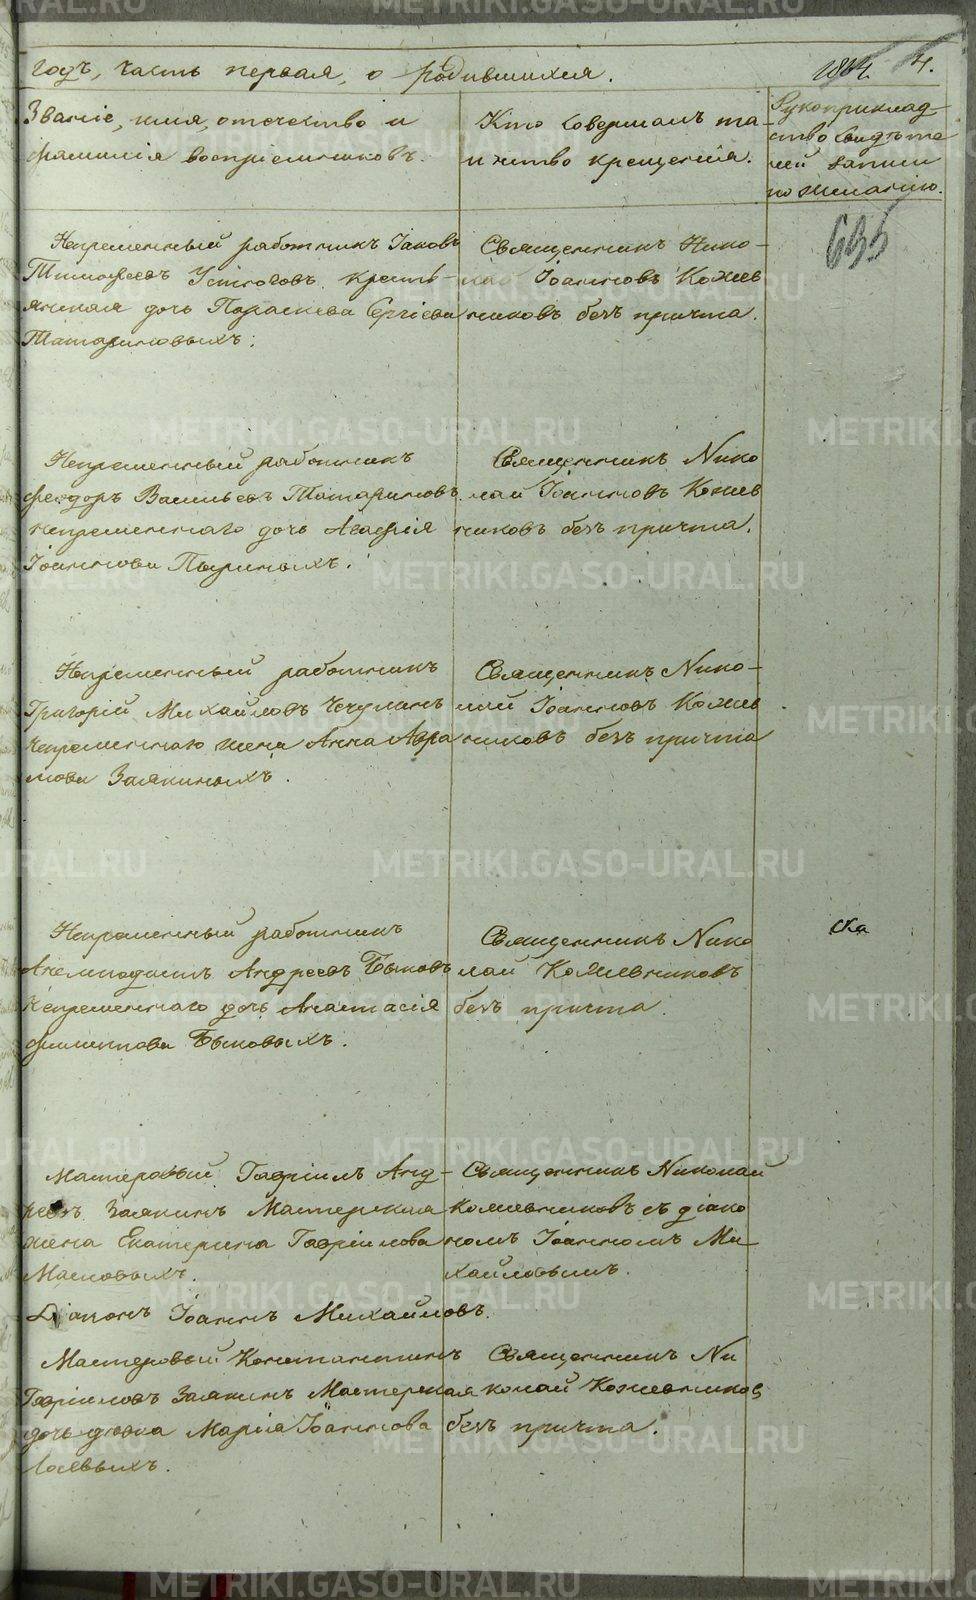 годъ, часть первая, о родившихся. 1864. 4.
Званіе, имя, отечество и
фамилія воспріемниковъ.
Кто совершалъ та-
инство крещенія.
Рукоприклад-
ство свидѣте
лей записи
по желанію.
635
Непременный работникъ Іаковъ
Тимофеевъ Устюговъ, кресть-
янская дочь Параскева Сергіева
Татариновыхъ.
Священникъ Нико-
лай Іоанновъ Кожев
никовъ безъ причта.
Непременный работникъ
Феодоръ Васильевъ Татариновъ
непременнаго дочь Агафія
Іоаннова Пыриныхъ.
Священникъ Нико
лай Іоанновъ Кожев
никовъ безъ причта.
Непременный работникъ
Григорій Михайловъ Чечулинъ
непременнаго жена Анна Авра
мова Заякиныхъ.
Священникъ Нико-
лай Іоанновъ Кожев
никовъ безъ причта
Непременный работникъ
Анемподистъ Андреевъ Быковъ
Непременнаго дочь Анастасія
филиппова Быковыхъ.
Священникъ Нико
лай Кожевниковъ
безъ причта.
Мастеровый Гавріилъ Анд-
реевъ Заякинъ Мастерская
жена Екатерина Гавріилова
Масловыхъ.
Священникъ Николай
Кожевниковъ съ діако
номъ Іоанномъ Ми-
хайловымъ.
Діаконъ Іоаннъ Михайловъ.
Мастеровый Константинъ
Гавріиловъ Заякинъ Мастерская
дочь девка Марія Іоаннова
Священникъ Ни
колай Кожевниковъ
безъ причта.
METRIKI.GASO-URAL.RU